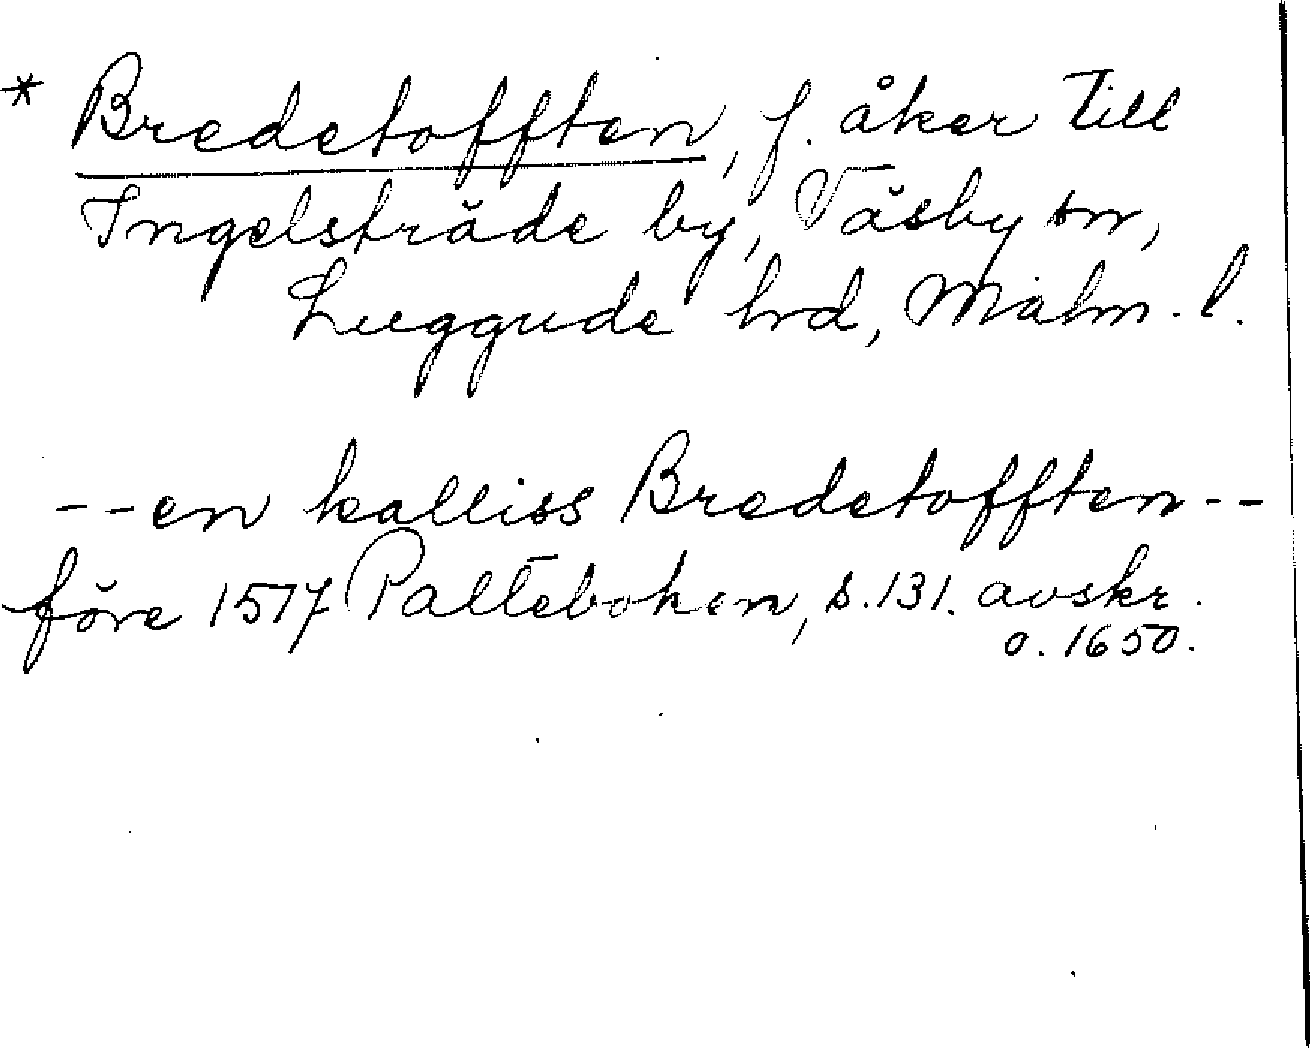 * Bredetofften, f. åker till
Ingelsträde by, Väsby sn,
Luggude hd, Malm. l.
--en kalliss Bredetofften--
före 1517 Palteboken, s. 131. avskr.
o. 1650.